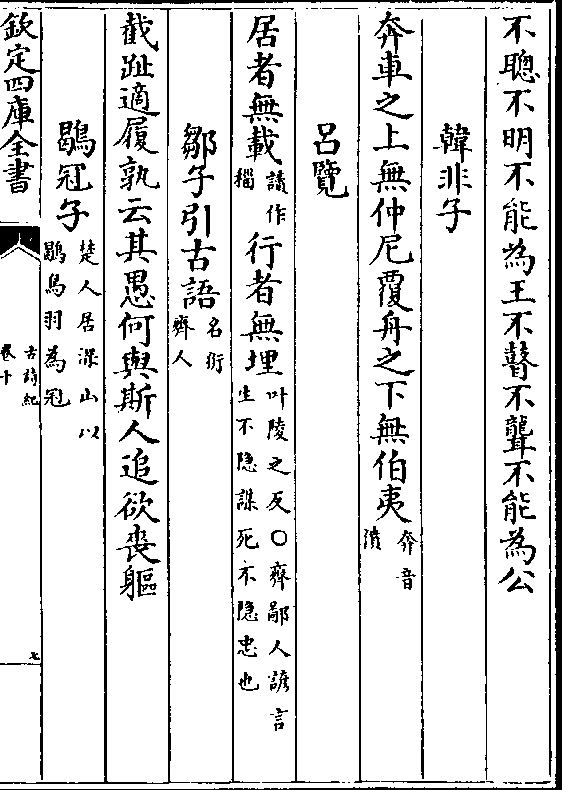 不聰不明不能為王不瞽不聾不能為公
韓非子
奔車之上無仲尼覆舟之下無伯夷奔音
濆
呂覽
居者無載讀作
穭行者無埋叶陵之反○齊鄙人諺言
生不隐謀死不隐忠也
鄒子引古語名衍
齊人
截趾適屨孰云其愚何與斯人追欲喪軀
鶡冠子楚人居深山以
鶡鳥羽為冠
欽定四庫全書
古詩紀
卷十
七